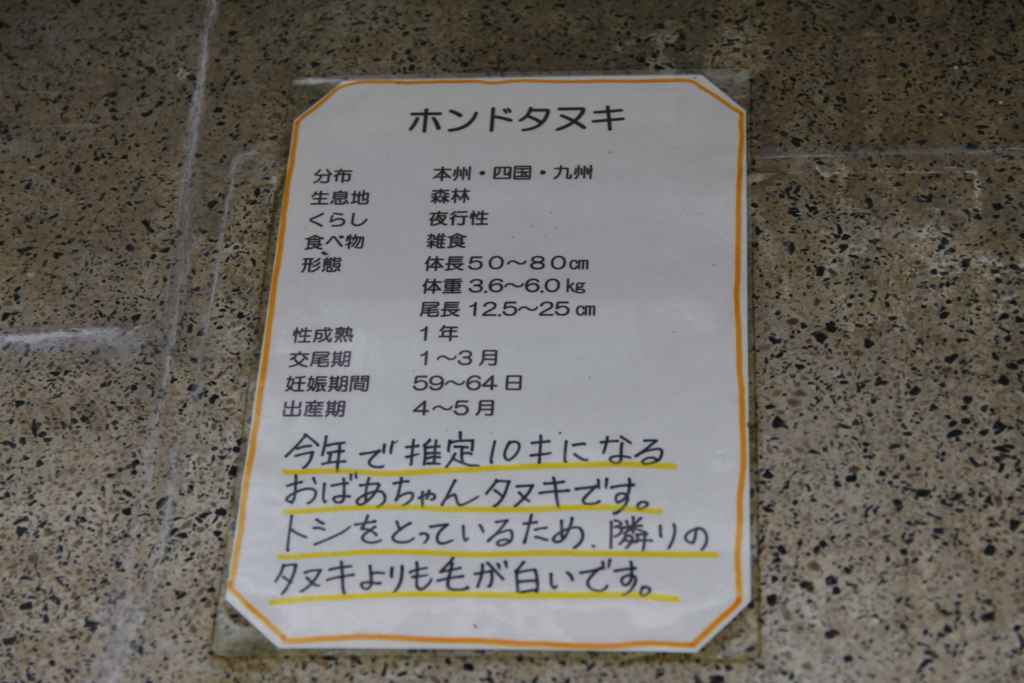 ホンドタヌキ
分布 本州・四国・九州
生息地 森林
くらし 夜行性
食べ物 雑食
形態 体長５０～８０㎝
体重 3.6～6.0㎏
尾長 12.5～25㎝
性成熟 １年
交尾期 １～３月
妊娠期間 59～64日
出産期 ４～５月
今年で推定10才になる
おばあちゃんタヌキです。
トシをとっているため、隣りの
タヌキよりも毛が白いです。